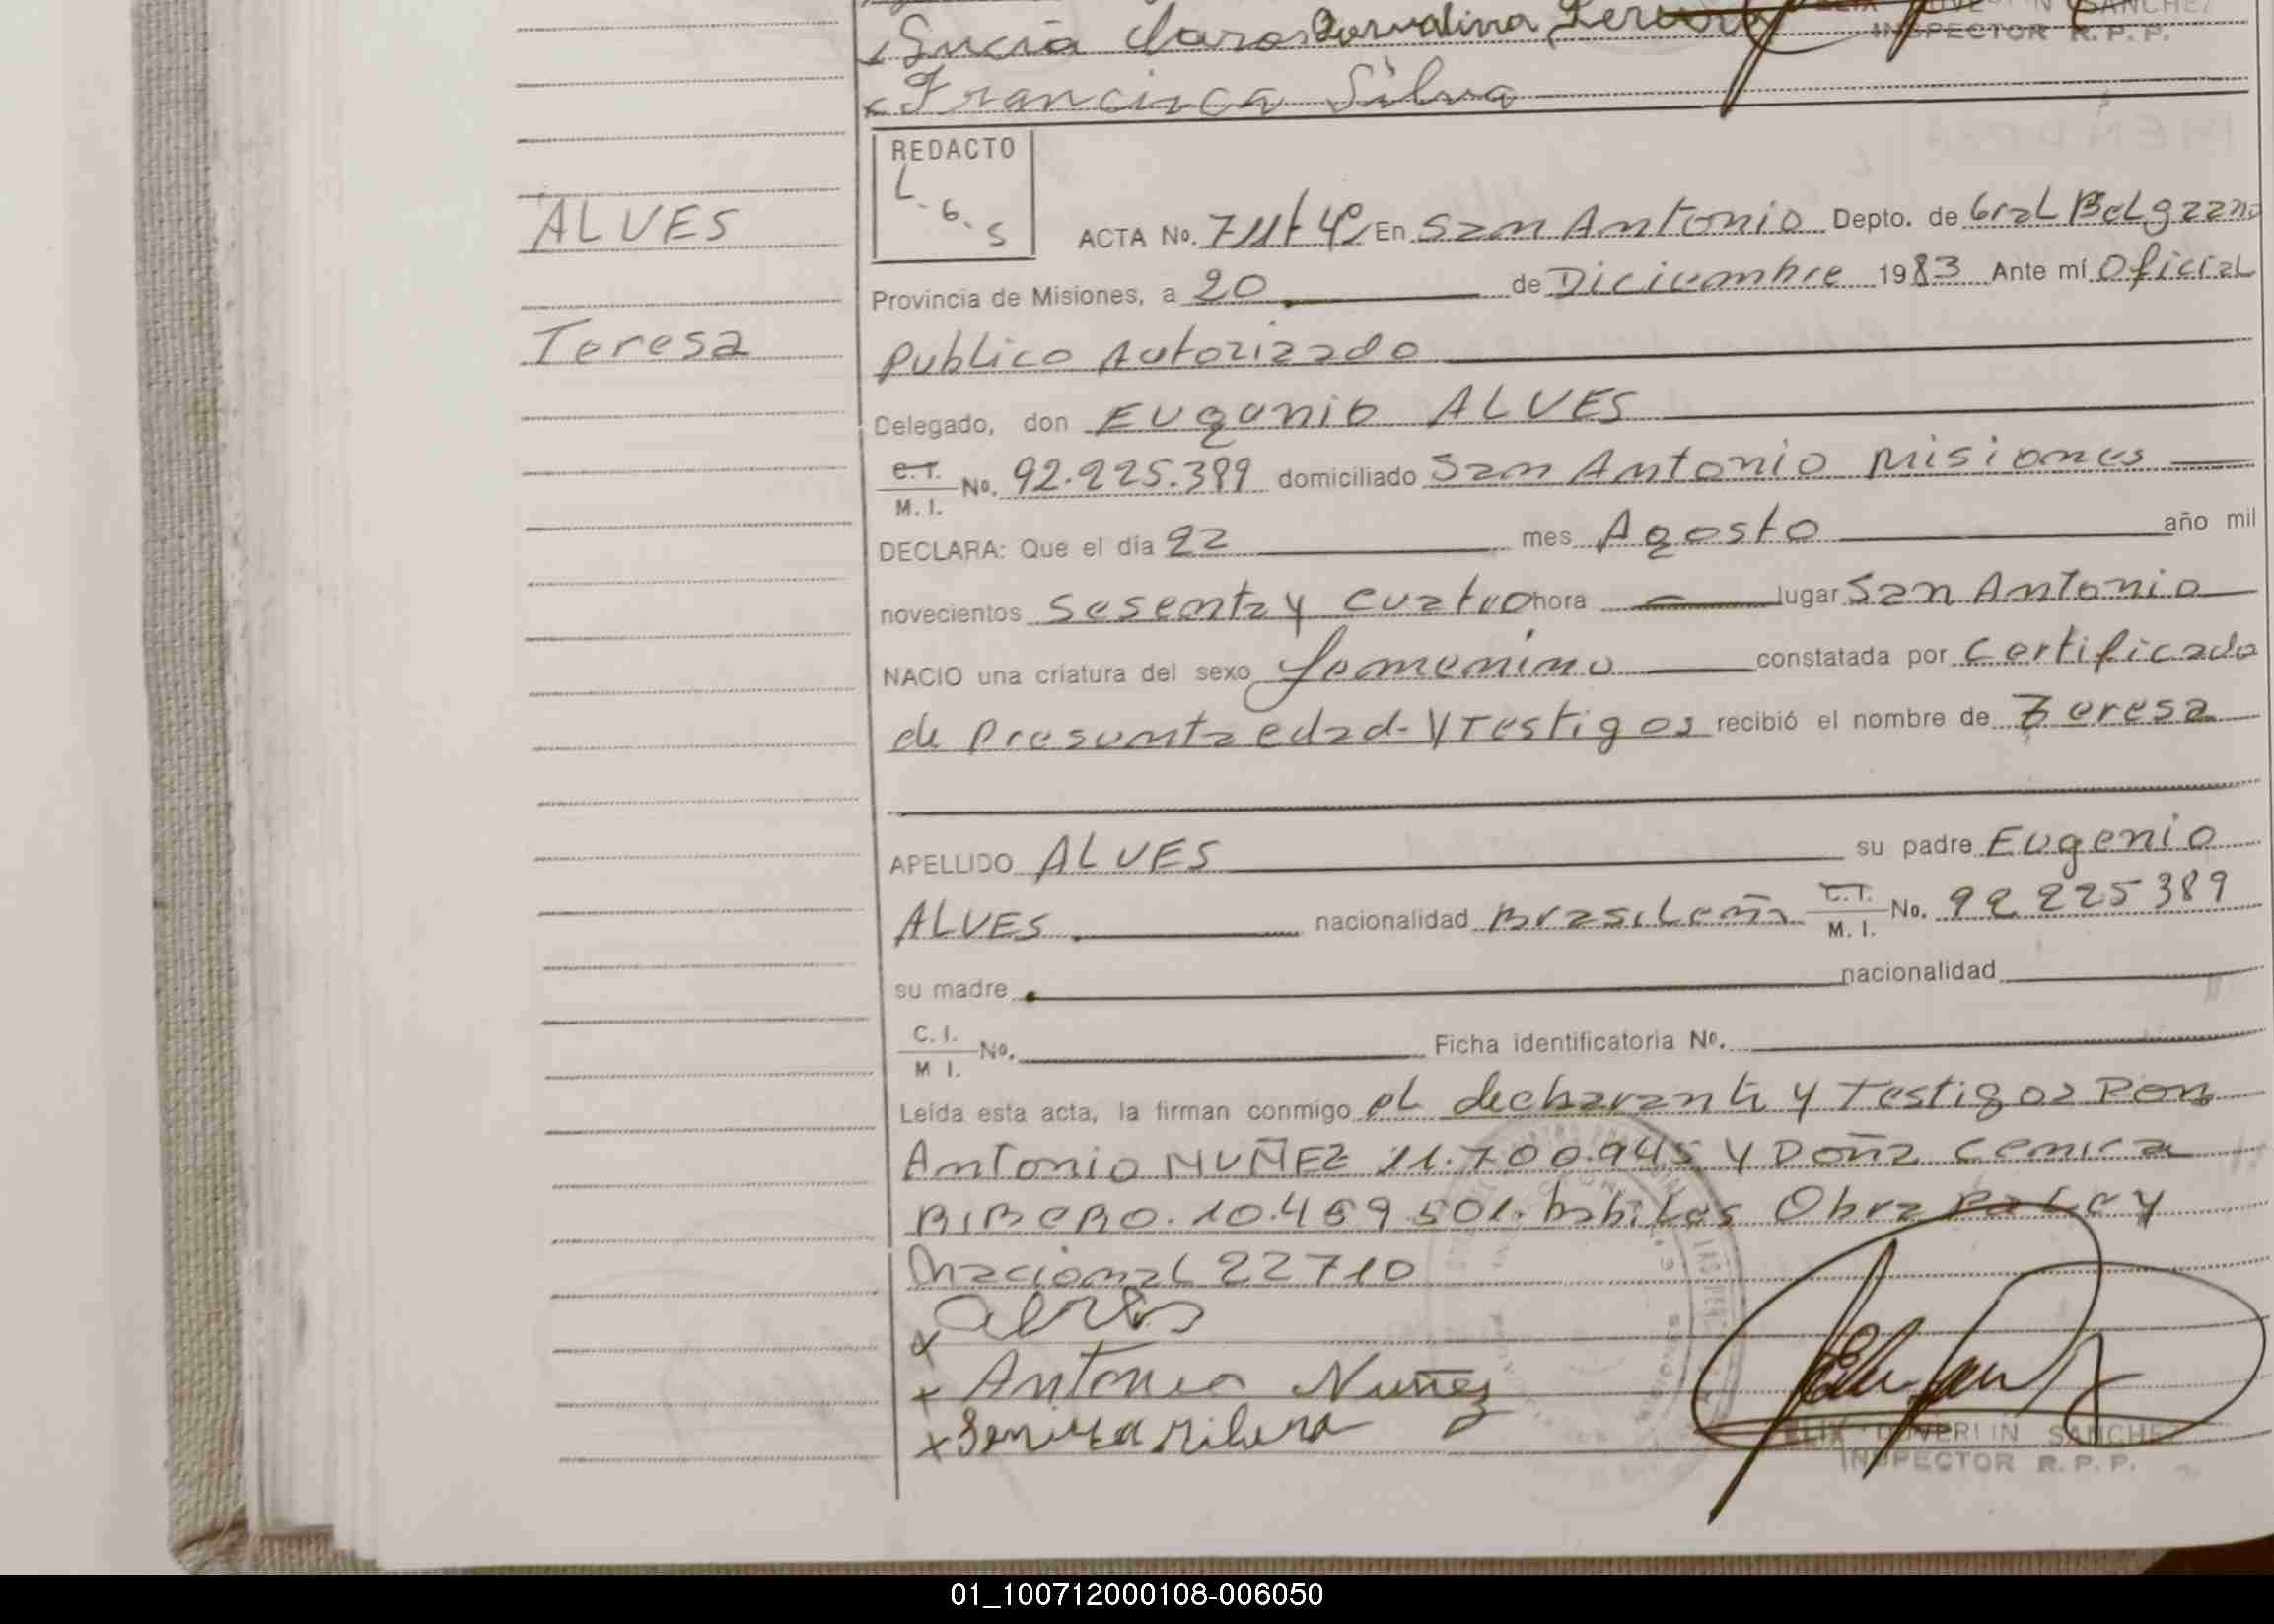 Lucia Claro Dorvalina Pereira SANCHEZ
INSPECTOR R. P. P.
x Francisca Silva
REDACTO
L-6-S
ALVES
ACTA No. 711 t 4º En San Antonio Depto. de Gral Belgrano
Provincia de Misiones, a 20 de Diciembre 1983 Ante mí Oficial
Teresa
Publico Autorizado
Delegado, don Eugenio ALVES
C.I. M. I. No. 92.225.389 domiciliado San Antonio Misiones
DECLARA: Que el día 22 mes Agosto año mil
novecientos Sesenta y cuatro hora lugar San Antonio
NACIO una criatura del sexo femenino constatada por Certificado
de Presunta edad- y Testigos recibió el nombre de Teresa
APELLIDO ALVES su padre Eugenio
ALVES nacionalidad Brasileña C.I. M. I. No. 92 225 389
su madre nacionalidad
C. I. M I. No. Ficha identificatoria Nº.
Leída esta acta, la firman conmigo el declarante y Testigos Don
Antonio NUÑEZ 11.700.945 y Doña
RIBERO. 10.459 501. habiles Obra Por Ley
Nacional 22710
x Alves
x Antonio Nuñez
x
FELIX DUVERLIN SANCHEZ
INSPECTOR R. P. P.
01_100712000108-006050